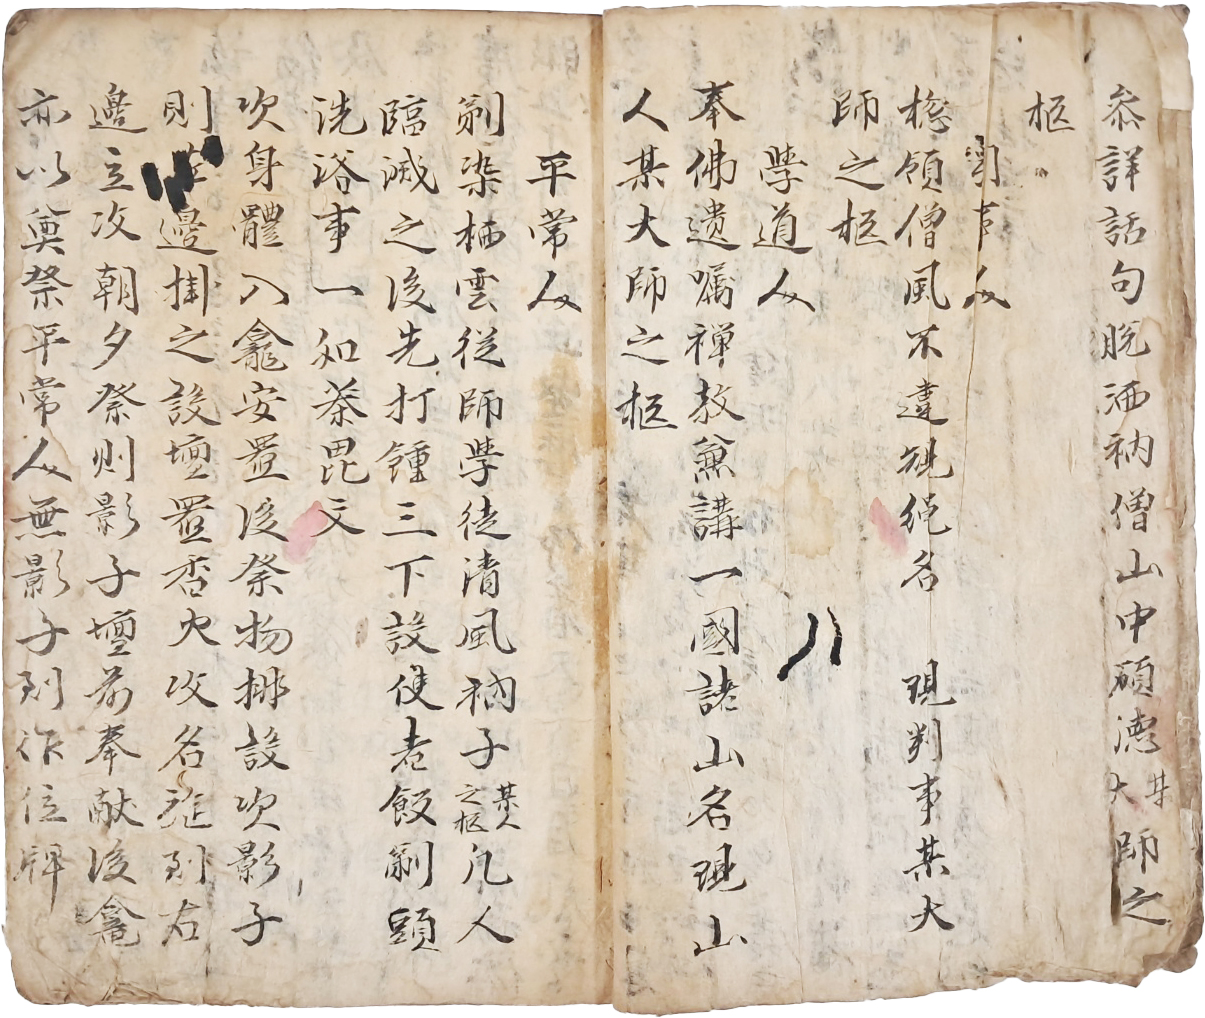 叅詳話句脫洒衲僧山中碩德某大師之
柩
判事人
捴領僧風不違規繩名 現判事某大
師之柩
學道人
奉佛遺囑禪教兼講一國諸山名現山
人某大師之柩
平常人
剃染栖雲從師學徒清風衲子某人之柩凡人
臨滅之後先打鍾三下設使老飯剃頭
洗浴事一如茶毘文
次身體入龕安置後祭物排設次影子
則邊掛之設壇置香火次名㫌則右
邊立次朝夕祭則影子壇前奉献後龕
亦以奠祭平常人無影子則作位牌